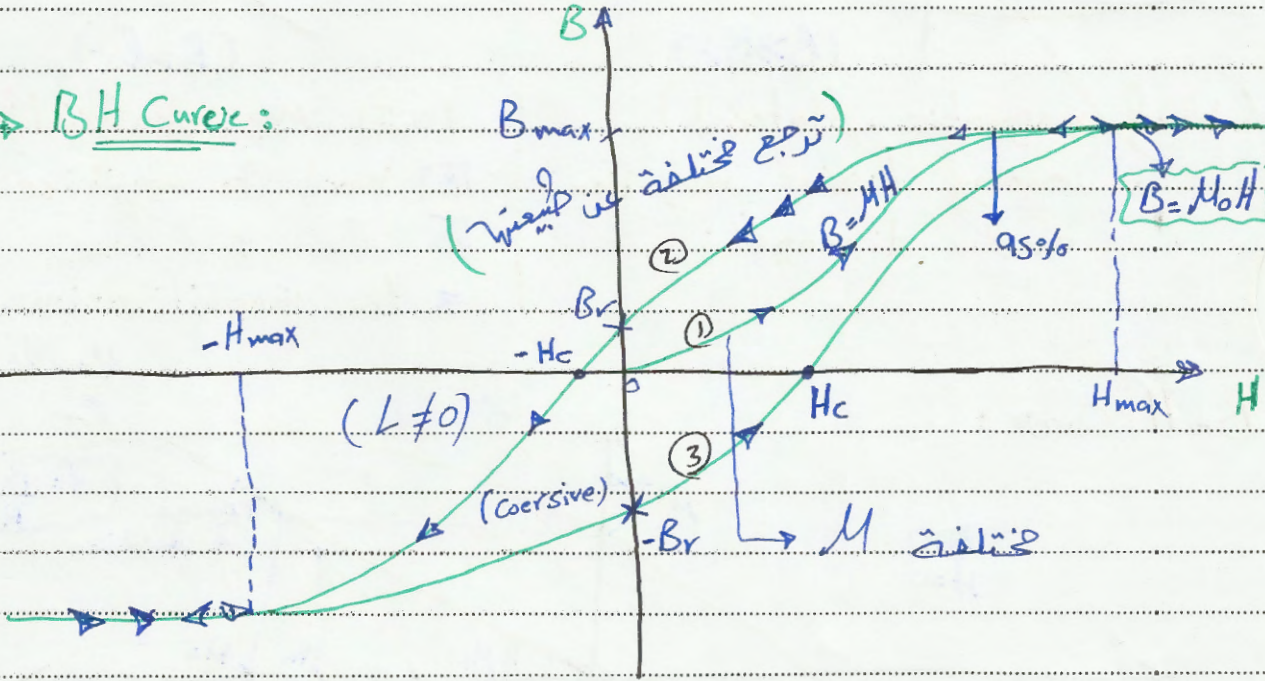 B
BH Curve:
Bmax
(ترجع مختلفة عن
B=μH
B=μ₀H
95%
②
Br
①
-Hmax
-Hc
0
Hc
Hmax
H
(L≠0)
③
(Coersive)
-Br
μ مختلفة